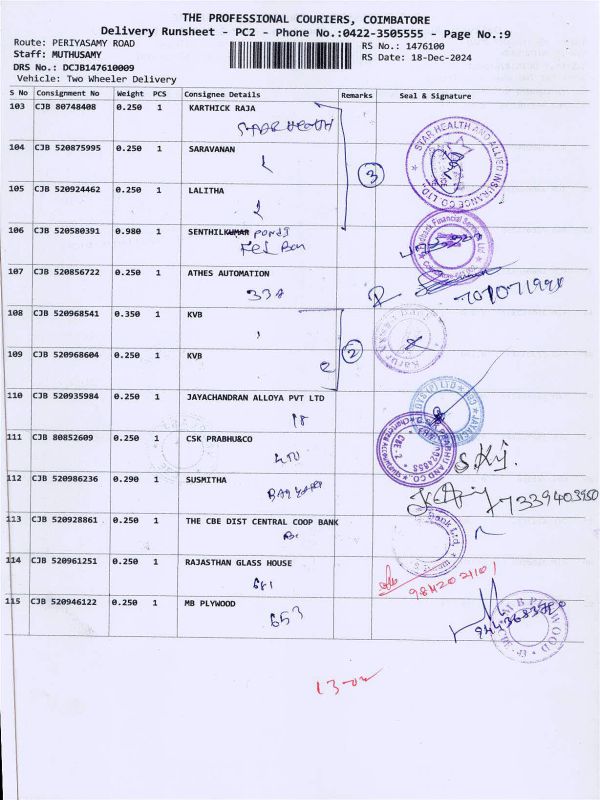 THE PROFESSIONAL COURIERS, COIMBATORE
Delivery Runsheet - PC2 - Phone No.:0422-3505555 - Page No.:9
Route: PERIYASAMY ROAD
RS No.: 1476100
Staff: MUTHUSAMY
RS Date: 18-Dec-2024
DRS No.: DCJB147610009
Vehicle: Two Wheeler Delivery
S No Consignment No Weight PCS Consignee Details Remarks Seal & Signature
103 CJB 80748408 0.250 1 KARTHICK RAJA
STAR HEALTH
STAR HEALTH AND ALLIED INSURANCE CO LTD.
104 CJB 520875995 0.250 1 SARAVANAN
3
105 CJB 520924462 0.250 1 LALITHA
106 CJB 520580391 0.980 1 SENTHILKUMAR
Financial Services Ltd
107 CJB 520856722 0.250 1 ATHES AUTOMATION
338
108 CJB 520968541 0.350 1 KVB
2
109 CJB 520968604 0.250 1 KVB
110 CJB 520935984 0.250 1 JAYACHANDRAN ALLOYA PVT LTD
18
111 CJB 80852609 0.250 1 CSK PRABHU&CO
112 CJB 520986236 0.290 1 SUSMITHA
7339403950
113 CJB 520928861 0.250 1 THE CBE DIST CENTRAL COOP BANK
Bank Ltd.
114 CJB 520961251 0.250 1 RAJASTHAN GLASS HOUSE
681
9842021101
115 CJB 520946122 0.250 1 MB PLYWOOD
653